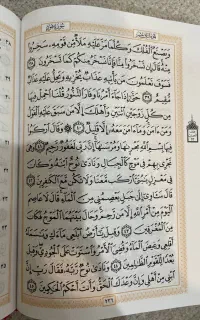 الجزء الثاني عشر سورة هود
وَيَصْنَعُ ٱلْفُلْكَ وَكُلَّمَا مَرَّ عَلَيْهِ مَلَأٌ مِّن قَوْمِهِۦ سَخِرُوا۟
مِنْهُ ۚ قَالَ إِن تَسْخَرُوا۟ مِنَّا فَإِنَّا نَسْخَرُ مِنكُمْ كَمَا تَسْخَرُونَ ٣٨
فَسَوْفَ تَعْلَمُونَ مَن يَأْتِيهِ عَذَابٌ يُخْزِيهِ وَيَحِلُّ عَلَيْهِ عَذَابٌ
مُّقِيمٌ ٣٩ حَتَّىٰٓ إِذَا جَآءَ أَمْرُنَا وَفَارَ ٱلتَّنُّورُ قُلْنَا ٱحْمِلْ فِيهَا
مِن كُلٍّ زَوْجَيْنِ ٱثْنَيْنِ وَأَهْلَكَ إِلَّا مَن سَبَقَ عَلَيْهِ ٱلْقَوْلُ
وَمَنْ ءَامَنَ ۚ وَمَآ ءَامَنَ مَعَهُۥٓ إِلَّا قَلِيلٌ ٤٠ ۞ وَقَالَ ٱرْكَبُوا۟
فِيهَا بِسْمِ ٱللَّهِ مَجْر۪ىٰهَا وَمُرْسَىٰهَآ ۚ إِنَّ رَبِّى لَغَفُورٌ رَّحِيمٌ ٤١ وَهِىَ
تَجْرِى بِهِمْ فِى مَوْجٍ كَٱلْجِبَالِ وَنَادَىٰ نُوحٌ ٱبْنَهُۥ وَكَانَ
فِى مَعْزِلٍ يَـٰبُنَىَّ ٱرْكَب مَّعَنَا وَلَا تَكُن مَّعَ ٱلْكَـٰفِرِينَ ٤٢
قَالَ سَـَٔاوِىٓ إِلَىٰ جَبَلٍ يَعْصِمُنِى مِنَ ٱلْمَآءِ ۚ قَالَ لَا عَاصِمَ
ٱلْيَوْمَ مِنْ أَمْرِ ٱللَّهِ إِلَّا مَن رَّحِمَ ۚ وَحَالَ بَيْنَهُمَا ٱلْمَوْجُ فَكَانَ
مِنَ ٱلْمُغْرَقِينَ ٤٣ وَقِيلَ يَـٰٓأَرْضُ ٱبْلَعِى مَآءَكِ وَيَـٰسَمَآءُ
أَقْلِعِى وَغِيضَ ٱلْمَآءُ وَقُضِىَ ٱلْأَمْرُ وَٱسْتَوَتْ عَلَى ٱلْجُودِىِّ ۖ وَقِيلَ
بُعْدًا لِّلْقَوْمِ ٱلظَّـٰلِمِينَ ٤٤ وَنَادَىٰ نُوحٌ رَّبَّهُۥ فَقَالَ رَبِّ إِنَّ
ٱبْنِى مِنْ أَهْلِى وَإِنَّ وَعْدَكَ ٱلْحَقُّ وَأَنتَ أَحْكَمُ ٱلْحَـٰكِمِينَ ٤٥
٢٢٦